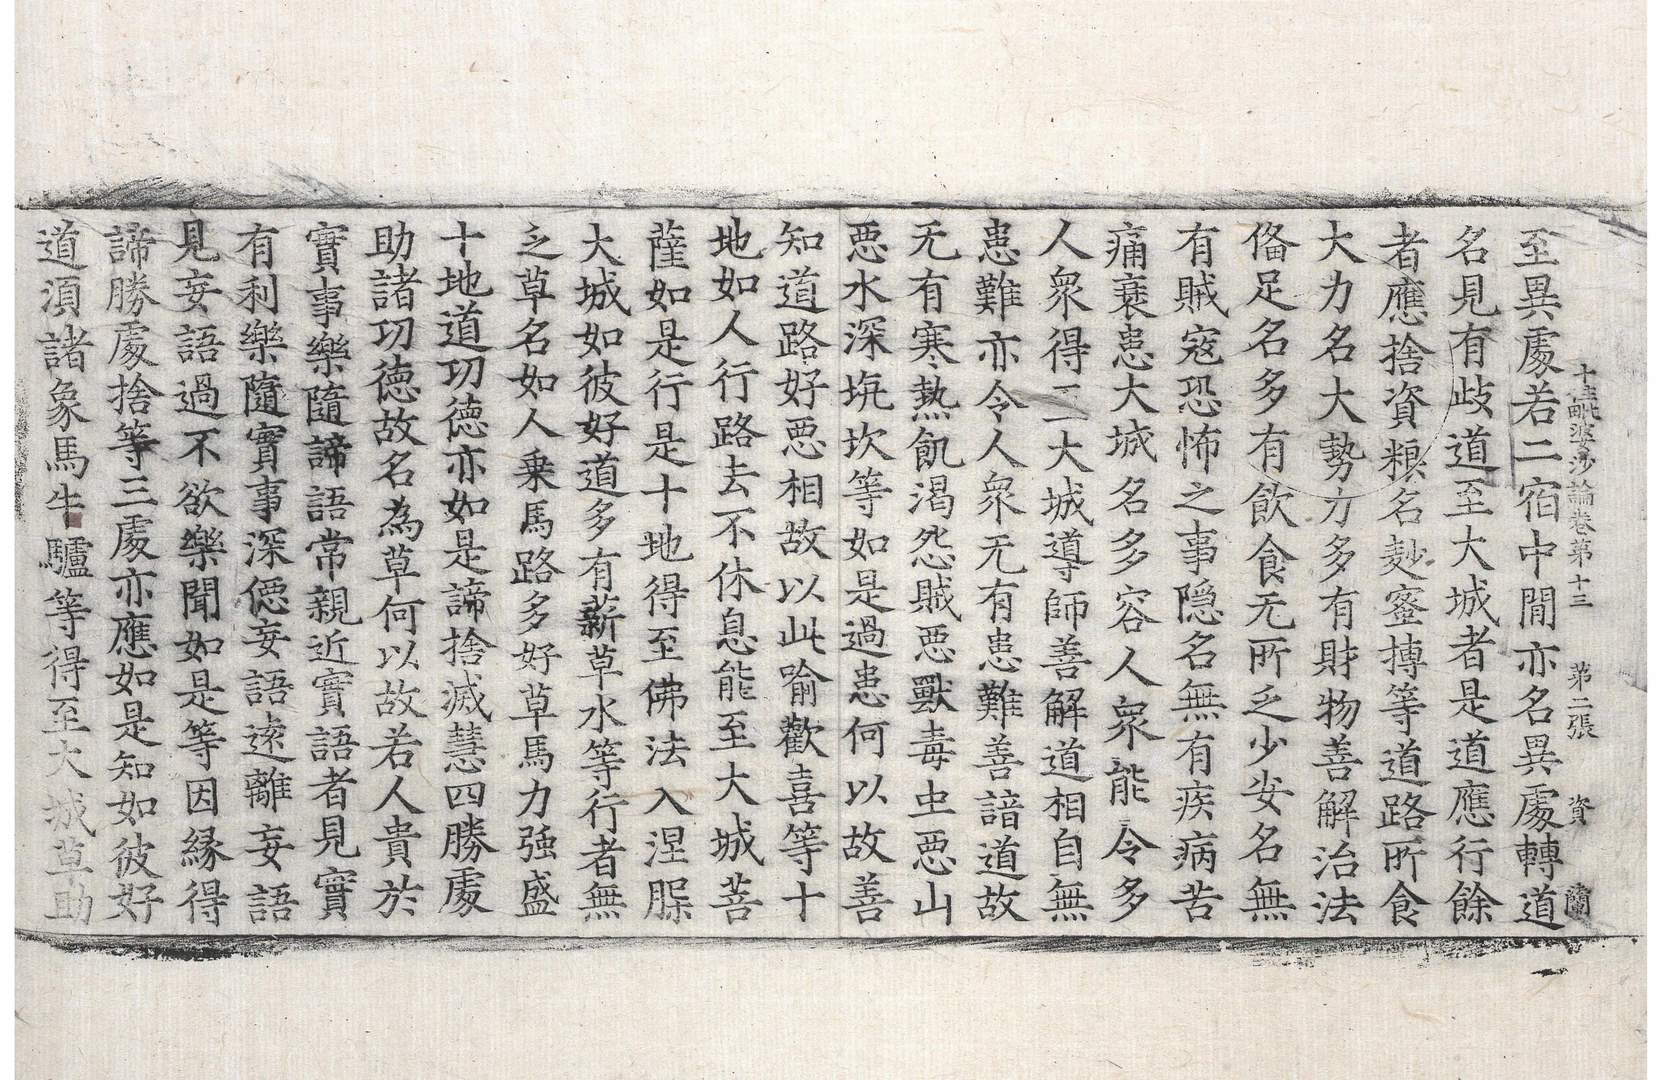 十住毗婆沙論卷第十三 第二張 資 蘭
至異處若二宿中間亦名異處轉道
名見有歧道至大城者是道應行餘
者應捨資糧名麨蜜摶等道路所食
大力名大勢力多有財物善解治法
俻足名多有飲食无所乏少安名無
有賊寇恐怖之事隱名無有疾病苦
痛衰患大城名多容人衆能令多
人衆得二大城導師善解道相自無
患難亦令人衆无有患難善諳道故
无有寒熱飢渴怨賊惡獸毒虫惡山
惡水深坑坎等如是過患何以故善
知道路好惡相故以此喻歡喜等十
地如人行路去不休息能至大城菩
薩如是行是十地得至佛法入涅䐁
大城如彼好道多有薪草水等行者無
乏草名如人乗馬路多好草馬力强盛
十地道功德亦如是諦捨滅慧四勝處
助諸功德故名為草何以故若人貴於
實事樂隨諦語常親近實語者見實
有利樂隨實事深㥲妄語遠離妄語
見妄語過不欲樂聞如是等因縁得
諦勝處捨等三處亦應如是知如彼好
道湏諸象馬牛驢等得至大城草助